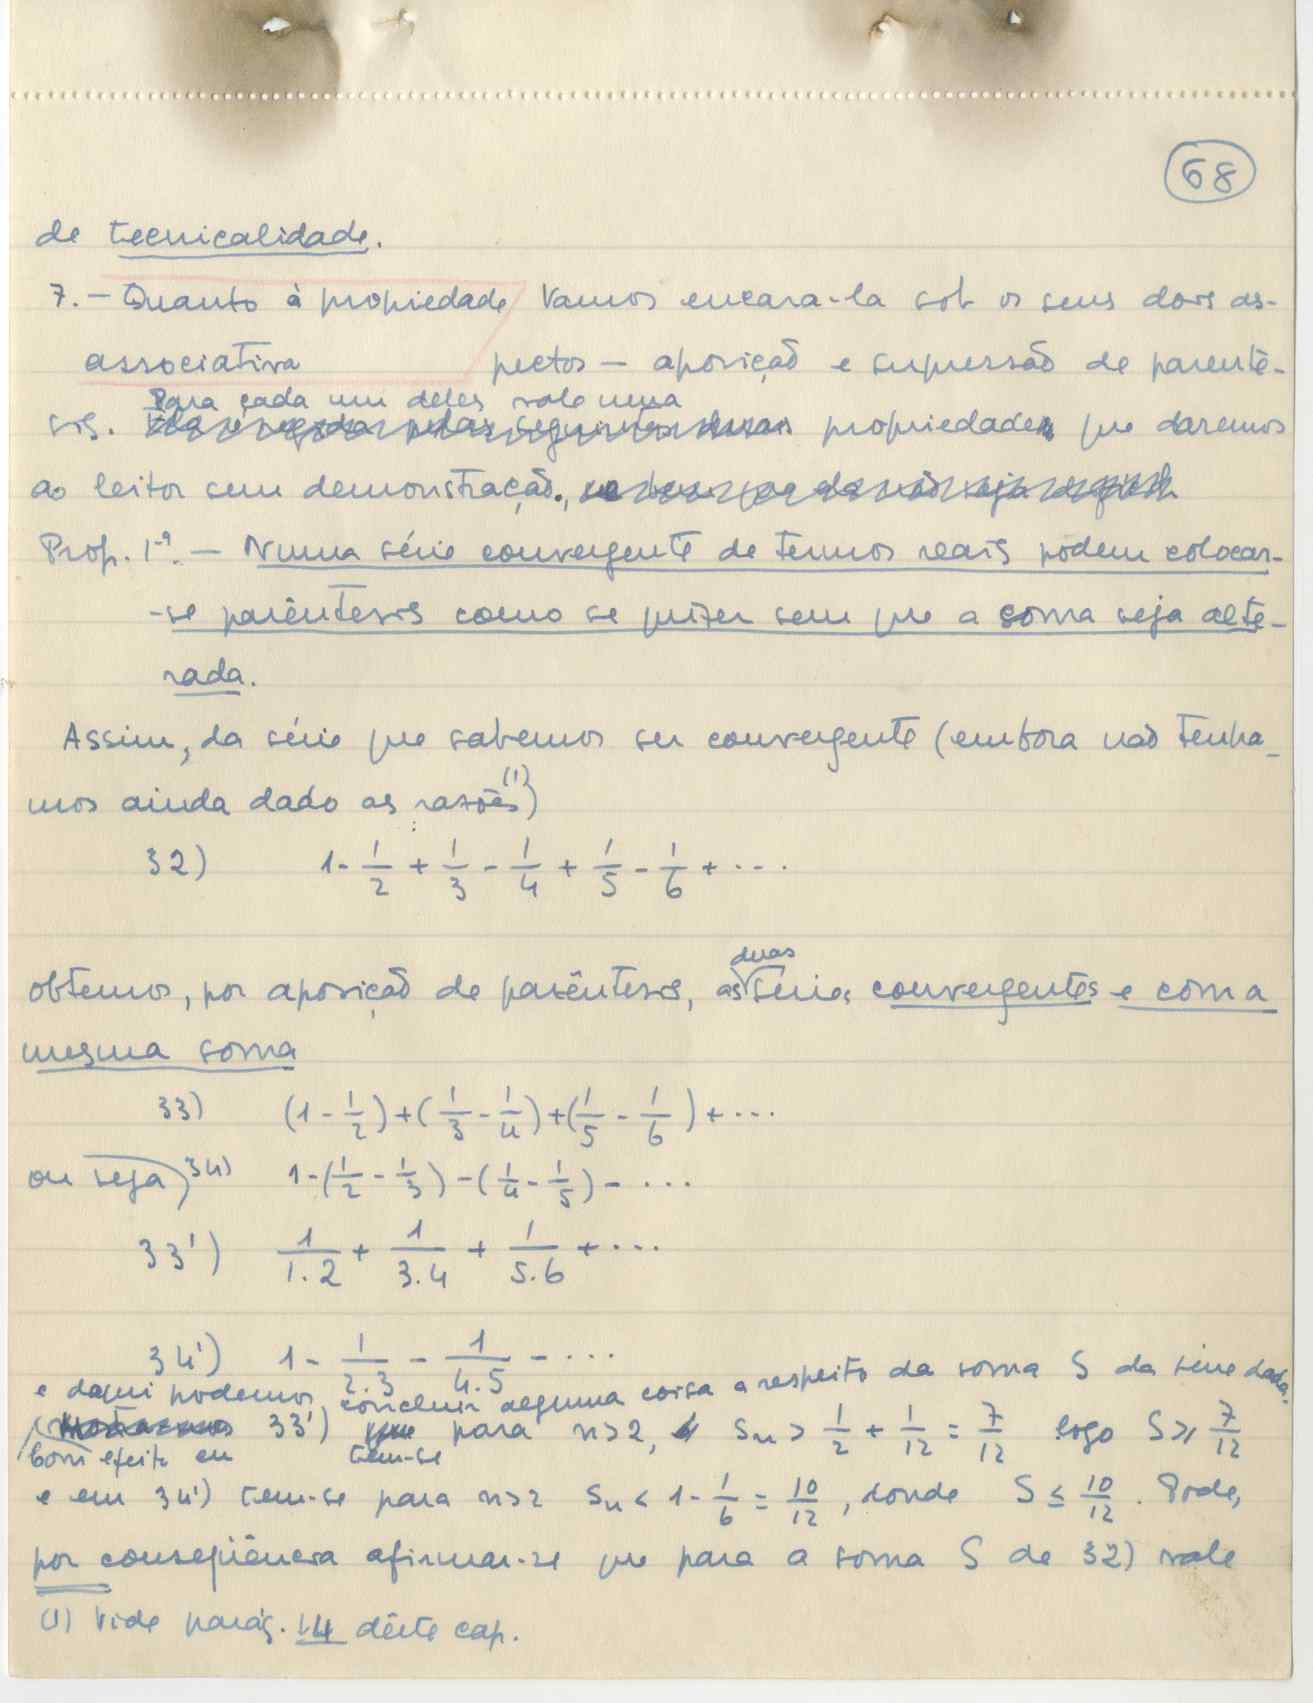 68
de tecnicalidade.
7. - Quanto à propriedade Vamos encara-la sob os seus dois as-
associativa pectos - aposição e supressão de parênte-
Para cada um deles vale uma
sis. propriedade que daremos
ao leitor sem demonstração.
Prop. 1ª. - Numa série convergente de termos reais podem colocar-
-se parêntesis como se quizer sem que a soma seja alte-
rada.
Assim, da série que sabemos ser convergente (embora não tenha-
mos ainda dado as razões (1))
32) 1 - 1/2 + 1/3 - 1/4 + 1/5 - 1/6 + ...
duas
obtemos, por aposição de parêntesis, as séries convergentes e com a
mesma soma
33) (1 - 1/2) + (1/3 - 1/4) + (1/5 - 1/6) + ...
ou seja, 34) 1 - (1/2 - 1/3) - (1/4 - 1/5) - ...
33') 1/1.2 + 1/3.4 + 1/5.6 + ...
34') 1 - 1/2.3 - 1/4.5 - ...
e daqui podemos concluir alguma coisa a respeito da soma S da série dada.
33') para n>2, sₙ > 1/2 + 1/12 = 7/12 logo S ≥ 7/12
Com efeito em tem-se
e em 34') tem-se para n>2 sₙ < 1 - 1/6 = 10/12, donde S ≤ 10/12. Pode,
por conseqüência afirmar-se que para a soma S de 32) vale
(1) Vide parág. 14 dêste cap.